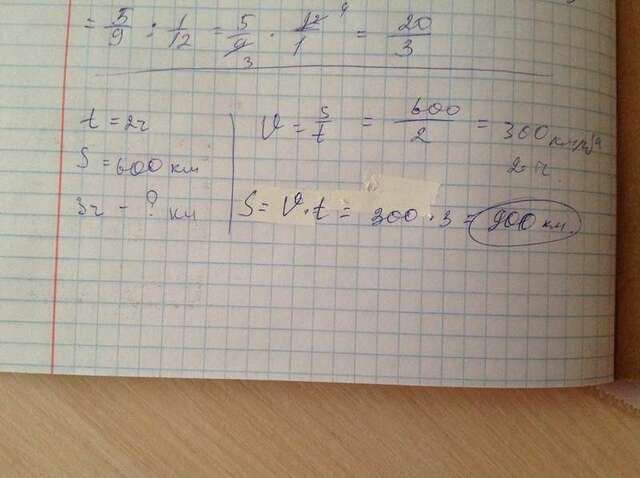 = 5/9 : 1/12 = 5/9 3 · 12/1 4 = 20/3
t = 2ч
S = 600 км
3ч - ? км
V = S/t = 600/2 = 300 км/ч
2 ч.
S = V · t = 300 · 3 = 900 км.